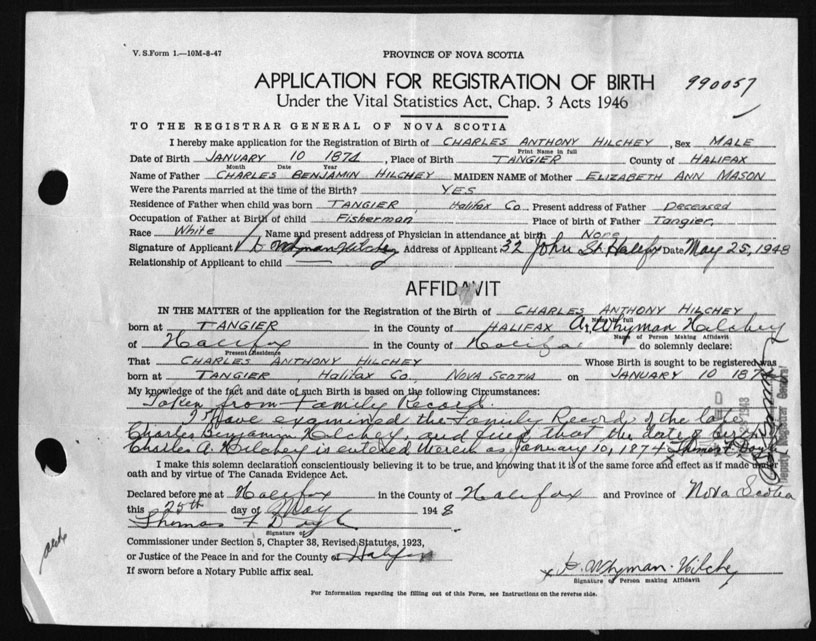 V. S. Form 1.—10M-8-47
PROVINCE OF NOVA SCOTIA
APPLICATION FOR REGISTRATION OF BIRTH
990057
Under the Vital Statistics Act, Chap. 3 Acts 1946
TO THE REGISTRAR GENERAL OF NOVA SCOTIA
I hereby make application for the Registration of Birth of CHARLES ANTHONY HILCHEY, Sex MALE
Print Name in full
Date of Birth JANUARY 10 1874, Place of Birth TANGIER County of HALIFAX
Month Date Year
Name of Father CHARLES BENJAMIN HILCHEY MAIDEN NAME of Mother ELIZABETH ANN MASON
Were the Parents married at the time of the Birth? YES
Residence of Father when child was born TANGIER Halifax Co. Present address of Father Deceased
Occupation of Father at Birth of child Fisherman Place of birth of Father Tangier.
Race White Name and present address of Physician in attendance at birth None
Signature of Applicant Whyman Hilchey Address of Applicant 32 John St. Halifax Date May 25, 1948
Relationship of Applicant to child
AFFIDAVIT
IN THE MATTER of the application for the Registration of the Birth of CHARLES ANTHONY HILCHEY
Name in full
born at TANGIER in the County of HALIFAX Whyman Hilchey
Name of Person Making Affidavit
of Halifax in the County of Halifax do solemnly declare:
Present Residence
That CHARLES ANTHONY HILCHEY Whose Birth is sought to be registered was
born at TANGIER, Halifax Co, NOVA SCOTIA on JANUARY 10 187
My knowledge of the fact and date of such Birth is based on the following Circumstances:
Taken from Family Record.
I have examined the Family Record of the late
Charles Benjamin Hilchey, and find that the date of birth
Charles A. Hilchey is entered therein as January 10, 1874 Thomas F Doyle
Deputy Registrar General
I make this solemn declaration conscientiously believing it to be true, and knowing that it is of the same force and effect as if made under
oath and by virtue of The Canada Evidence Act.
Declared before me at Halifax in the County of Halifax and Province of Nova Scotia
this 25th day of May 1948
Thomas F Doyle
Signature of
Commissioner under Section 5, Chapter 38, Revised Statutes, 1923,
or Justice of the Peace in and for the County of Halifax
If sworn before a Notary Public affix seal.
Whyman Hilchey
Signature of Person making Affidavit
For Information regarding the filling out of this Form, see Instructions on the reverse side.